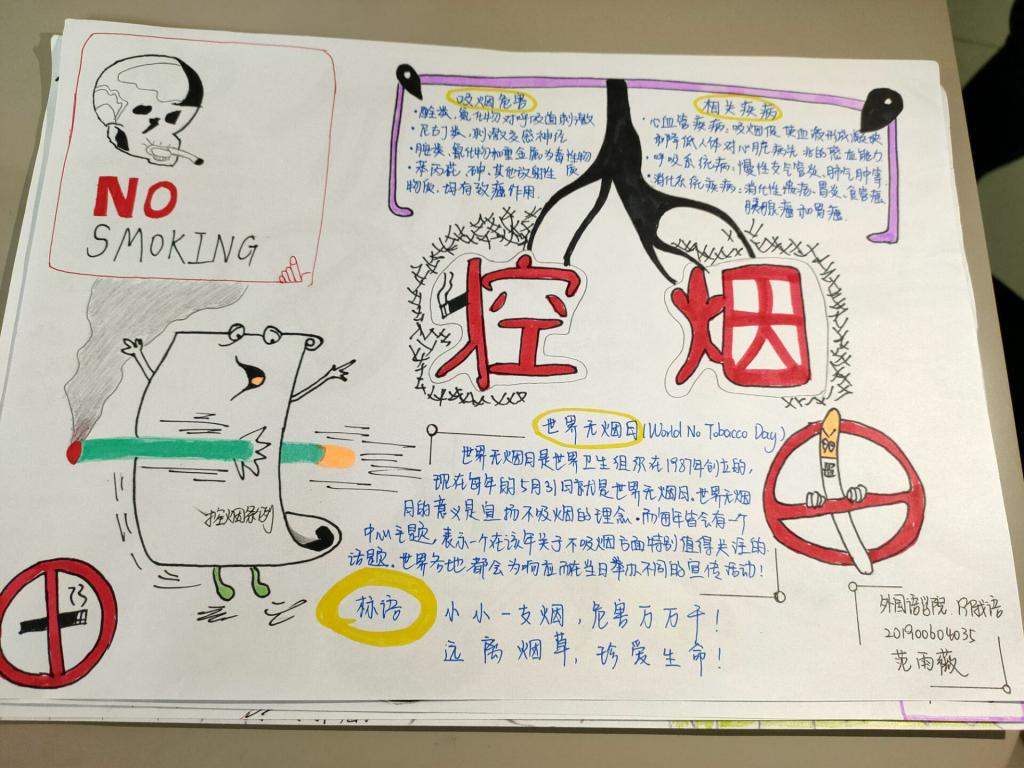 NO
SMOKING
吸烟危害
·醛类、氮化物对呼吸道刺激
·尼古丁类、刺激交感神经
·胺类、氰化物和重金属为毒性物
·苯丙芘、砷、其他放射性 质
物质,均有致癌作用.
相关疾病
·心血管疾病:吸烟促使血液形成凝块
和降低人体对心脏病先兆的感应能力
·呼吸系统病:慢性支气管炎、肺气肿等.
·消化系统疾病:消化性溃疡、胃炎、食管癌
胰腺癌和胃癌.
控 烟
世界无烟日(World No Tobacco Day)
世界无烟日是世界卫生组织在1987年创立的,
现在每年的5月31日就是世界无烟日.世界无烟
日的意义是宣扬不吸烟的理念.而每年皆会有一个
中心主题,表示一个在该年关于不吸烟方面特别值得关注的
话题.世界各地都会为响应而在当日举办不同的宣传活动!
控烟条例
标语
小小一支烟,危害万万千!
远离烟草,珍爱生命!
外国语学院
201900604035
范雨薇